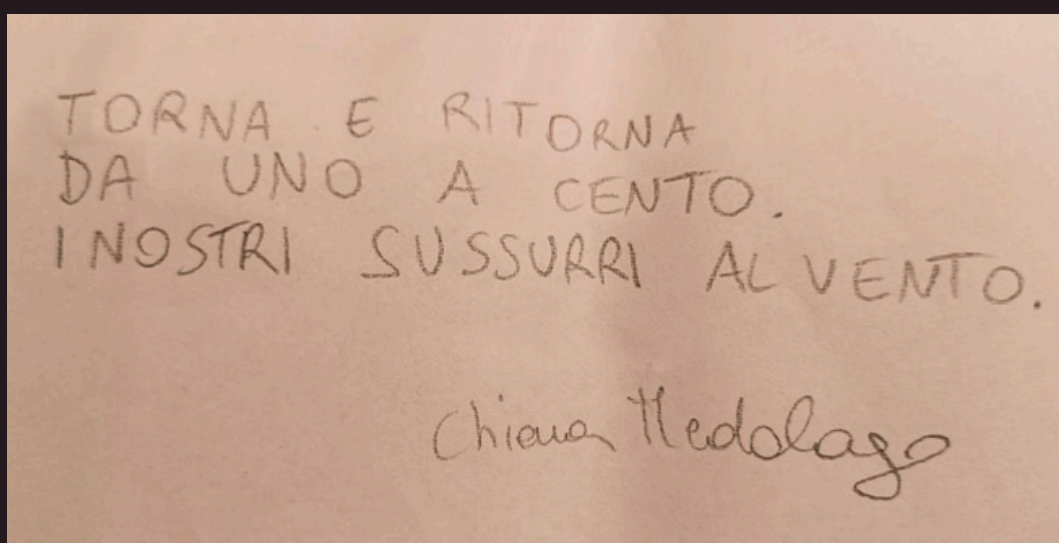 TORNA E RITORNA
DA UNO A CENTO.
I NOSTRI SUSSURRI AL VENTO.
Chiara Medolago